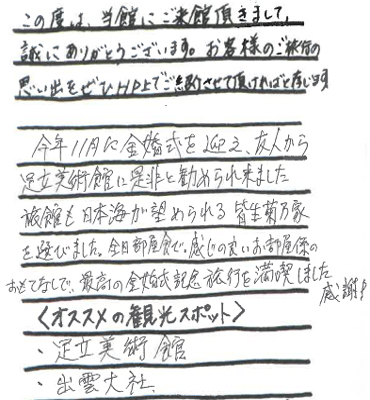 この度は、当館にご来館頂きまして、
誠にありがとうございます。お客様のご旅行の
思い出をぜひHP上でご紹介させて頂ければと存じます
今年11月に金婚式を迎え、友人から
足立美術館に是非と勧められ来ました
旅館も日本海が望められる皆生菊乃家
を選びました。全日部屋食で、感じの良いお部屋係の
おもてなしで、最高の金婚式記念旅行を満喫しました
感謝!
<オススメの観光スポット>
・足立美術館
・出雲大社